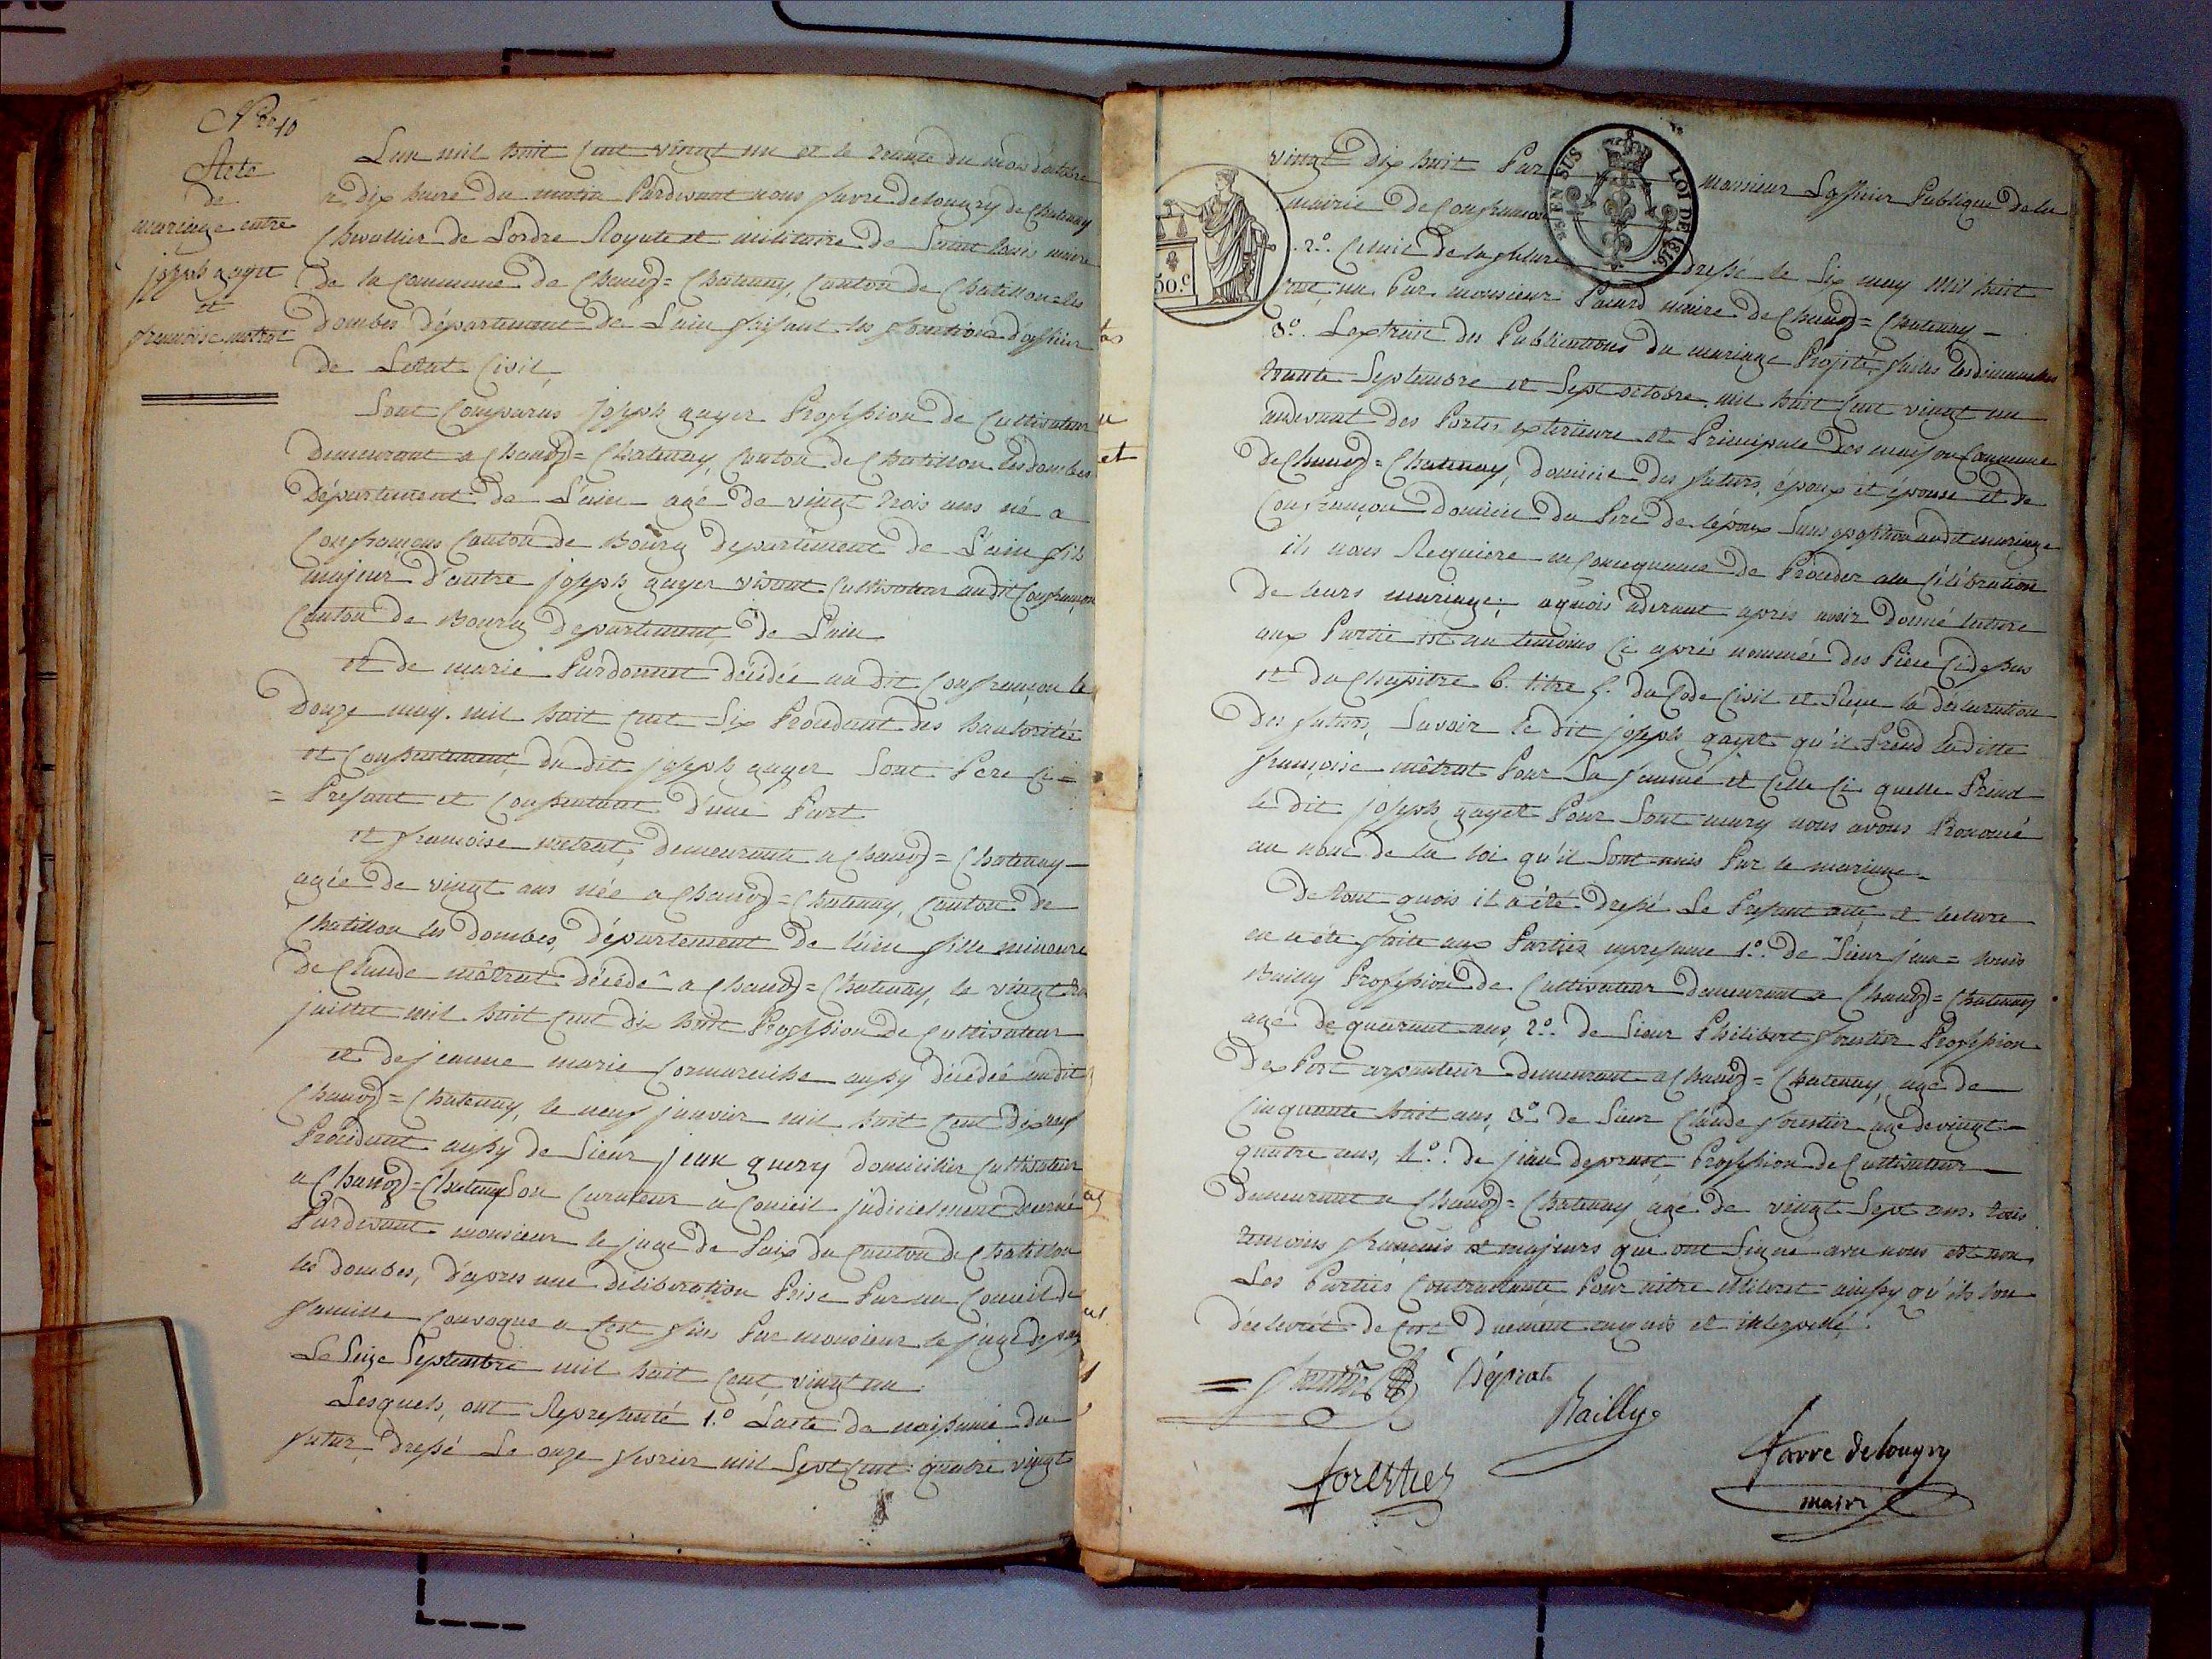 No 10
Acte
de
mariage entre
joseph gayet
et
francoise metrat
Lan mil huit Cent vingt un et le trante du mois d'octobre
a dix heure du matin Pardevant nous favre delongry de Chatenay
Chevallier de Lordre Royale et militaire de Saint Louis maire
de la Commune de Chanoz = Chatenay, Canton de Chatillon les
Dombes département de L'ain faisant les fonctions d'officier
de Letat Civil,
Sont Comparus joseph gayer Proffession de Cultivateur
Demeurant a Chanoz = Chatenay, Canton de Chatillon les dombes
Département de L'ain agé de vingt trois ans né a
Confrançons Canton de Bourg departement de L'ain fils
majeur d'autre joseph gayer vivant Cultivateur audit Confrançon
Canton de Bourg Departement de L'ain
et de marie Pardonnet décédée au dit Confrançon le
Douze may. mil huit Cent Six Procedant des hautorités
et Consentement du dit joseph gayer Sont Pere Ci =
= Present et Consentant d'une Part
et francoise metrat, demeurante a Chanoz = Chatenay
agée de vingt ans née a Chanoz = Chatenay, Canton de
Chatillon les Dombes, département de l'ain fille mineure
De Claude mêtrat décédê a Chanoz = Chatenay, le vingt
juillet mil huit Cent dix huit Proffession de Cultivateur
et de jeanne marie Cormareche aussy décédée audit
Chanoz = Chatenay, le neuf janvier mil huit Cent dix neuf
Procedant aussy de Sieur jean guery domicilier Cultivateur
a Chanoz = Chatenay Son Curateur a Conseil judicielment decerné
Pardevant monsieur le juge de Paix du Canton de Chatillon
les dombes, d'apres une déliberation Prise Par un Conseil de
famille Convoque a Cest fins Par monsieur le juge de paix
Le Seize Septembre mil huit Cent vingt un
Lesquels, ont Represanté 1.º Lacte de naissance du
futur dressé Le onze fevrier mil Sept Cent quatre vingt
vingt Dix huit Par monsieur Lofficier Publique de la
mairie de Confrancon
2.º Celuit de la future dressé le Six may mil huit
Cent, un Par monsieur Pacard maire de Chanoz = Chatenay
3.º Lextrait des Publications du mariage Projeté, faites les dimanches
trante Septembre et Sept octobre mil huit Cent vingt un
audevant des Portes exterieure et Principale des maison Commune
de Chanoz = Chatenay, domicile des futurs, époux et épouse et de
Confrançon Domicile du Pere de lépoux Sans oposition audit mariage
ils nous Requiere en Consequance de Proceder ala Célébration
de leurs mariage; aquois aderant aprés avoir Donné lecture
aux Partie et au temoins Ci aprés nommés des Piece Cidessus
et du Chapitre 6. titre 5. du Code Civil et Reçue la déclaration
Des futurs, Savoir le dit joseph gayet qu'il Prend laditte
françoise mêtrat Pour Sa femme et Celle Ci quelle Prend
le dit joseph gayet Pour Sont mary nous avons Prononcé
au nom de la loi qu'il Sont unis Par le mariage.
De tout quois il a été dressé Le Present acte et lecture
en a été faite aux Parties enpresance 1.º de Sieur jean = Louis
Bailly Proffession de Cultivateur Demeurant a Chanoz = Chatenay
agé de quarant ans, 2.º de Sieur Philibert forestier Proffession
Dex Pert arpanteur demeurant a Chanoz = Chatenay, agé de
Cinquante huit ans, 3.º de Sieur Claude forestier agé de vingt
quatre ans, 4.º de jean deprast Proffession de Cultivateur
Demeurant a Chanoz = Chatenay agé de vingt Sept ans. tous
temoins français et majeurs qui ont Signe avec nous et non
Les Parties Contractante Pour nêtre illiteret ainssy qu'ils lon
décleret de Cest Duement enquis et interpellé.
Déprat
Bailly
forestier
favre delongry
maire
EN SUS
LOI DE 1816
50.c